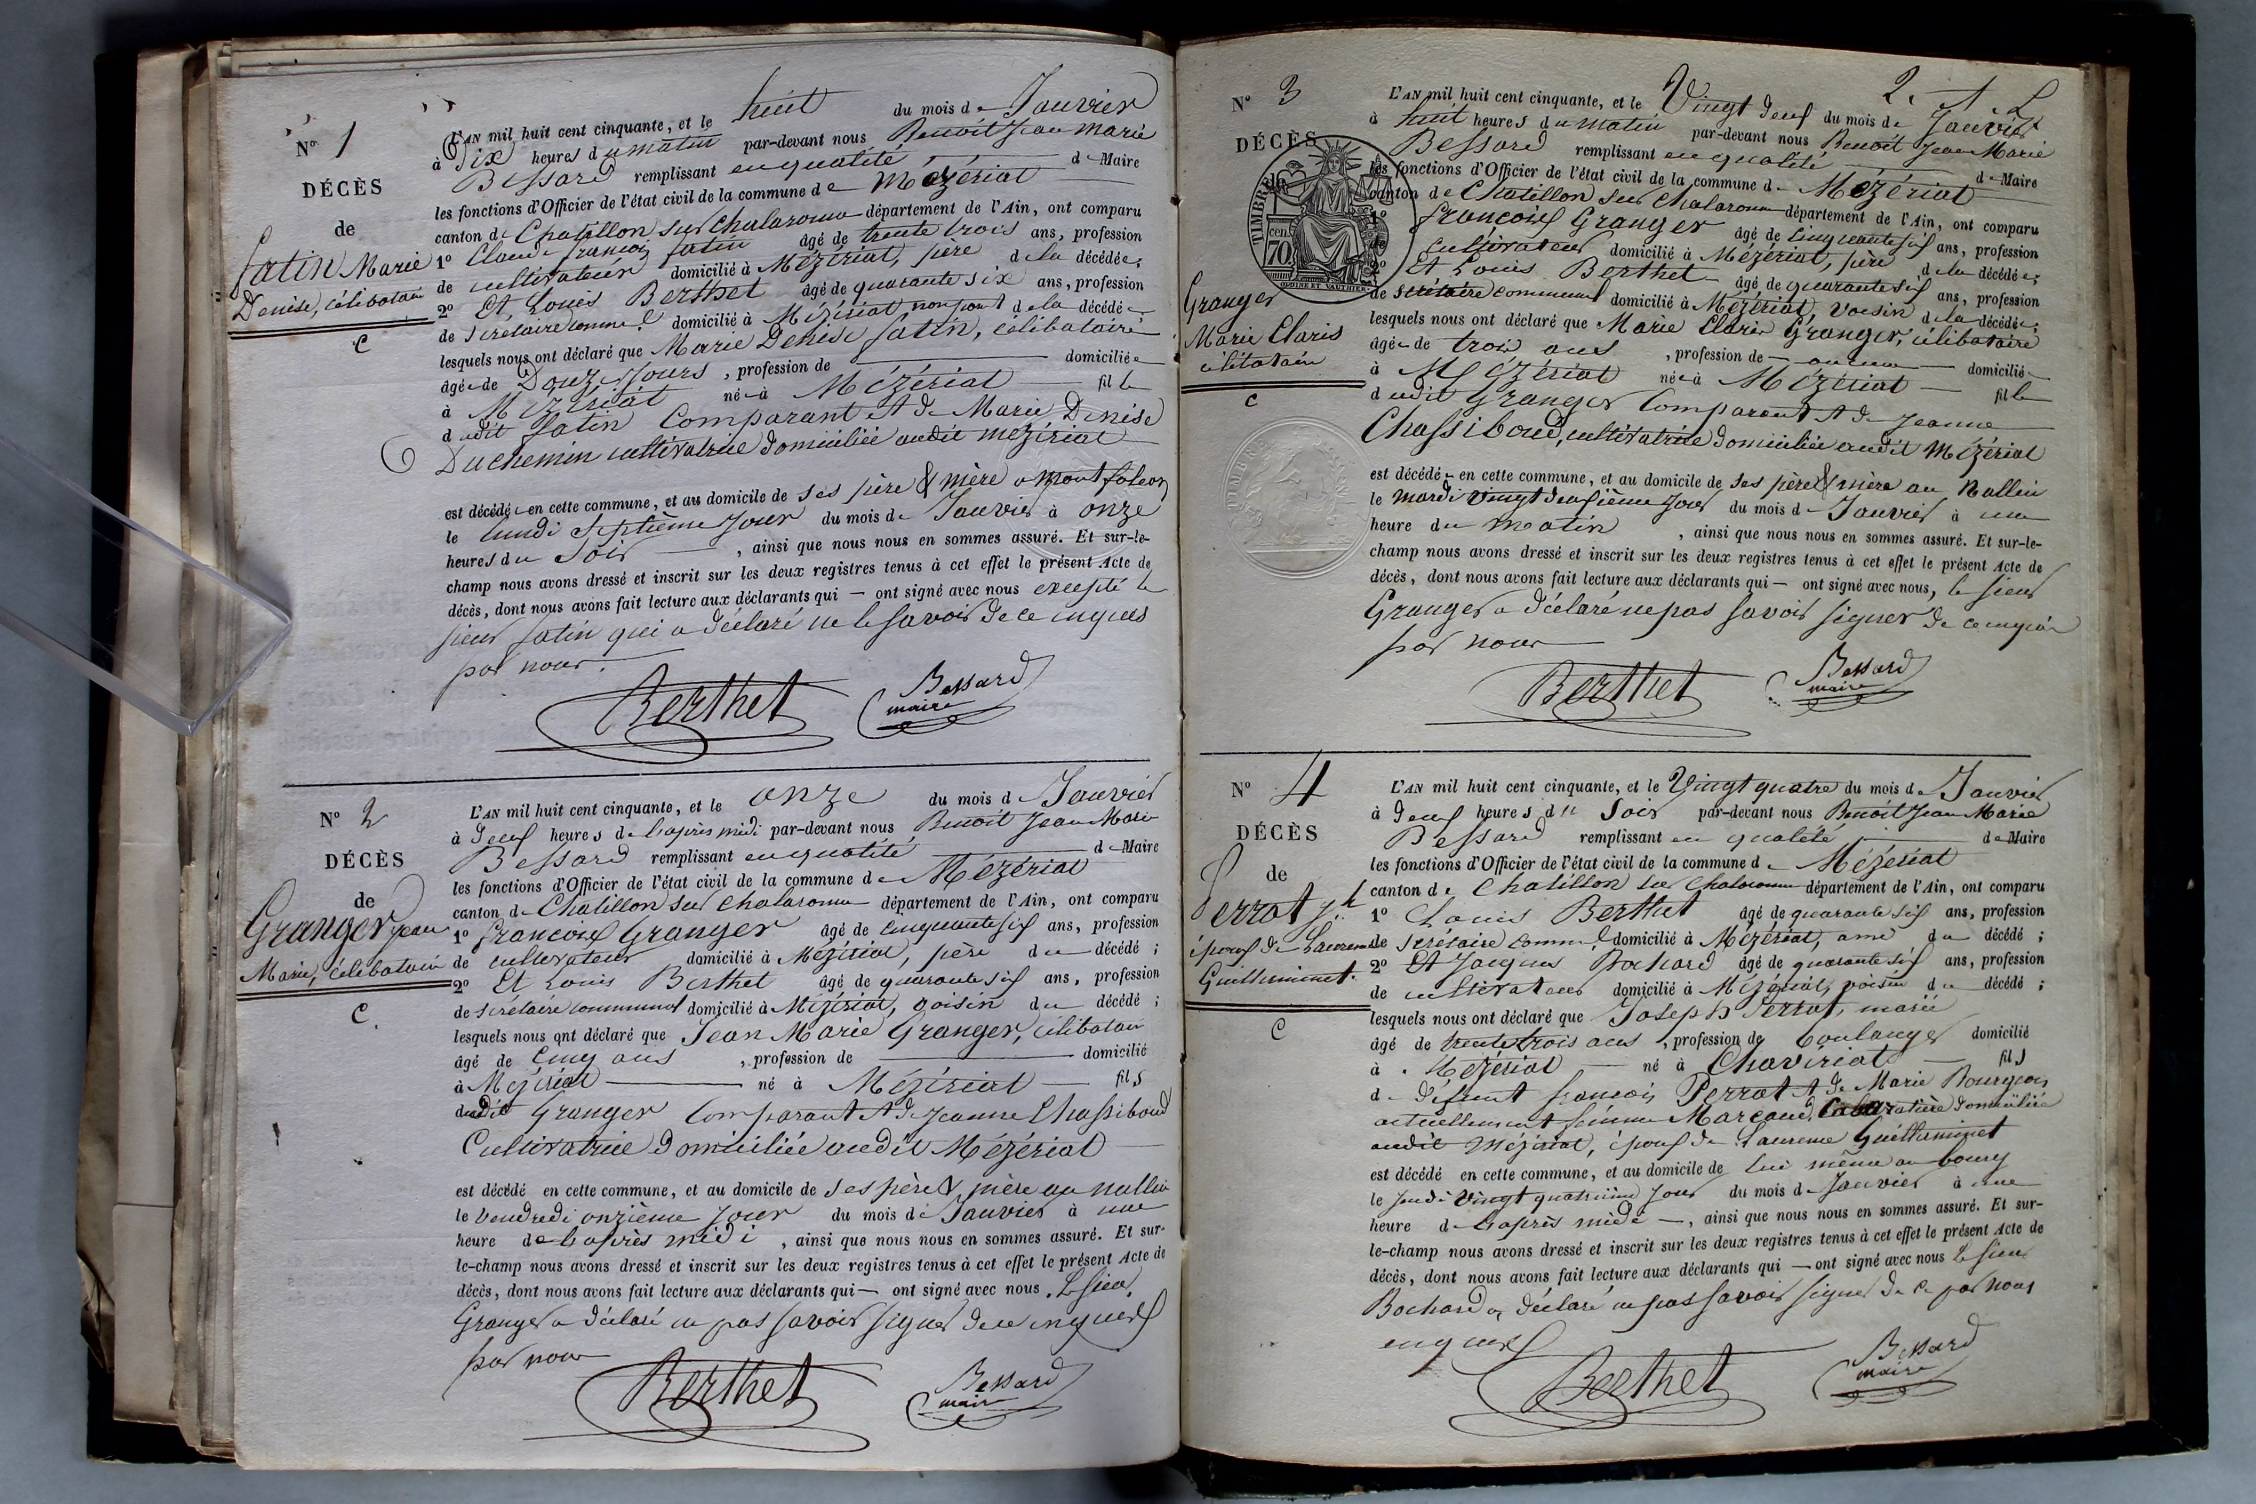 N° 1
DÉCÈS
de
Fatin Marie
Denise, célibataire
C
L'AN mil huit cent cinquante, et le huit du mois de Janvier
à Dix heures du matin par-devant nous Benoît Jean Marie
Bessard remplissant en qualité de Maire
les fonctions d'Officier de l'état civil de la commune de Mézériat
canton de Chatillon sur Chalaronne département de l'Ain, ont comparu
1° Claude françois fatin âgé de trente trois ans, profession
de cultivateur domicilié à Mézériat, père de la décédée;
2° Et Louis Berthet âgé de quarante six ans, profession
de secrétaire communal domicilié à Mézériat non parent de la décédée;
lesquels nous ont déclaré que Marie Denise fatin, célibataire
âgée de Douze Jours, profession de domiciliée
à Mézériat née à Mézériat fille
dudit fatin Comparant et de Marie Denise
Duchemin cultivatrice domiciliée audit mézériat
est décédée en cette commune, et au domicile de ses père & mère a montfalcon
le lundi septième jour du mois de Janvier à onze
heures du Soir, ainsi que nous nous en sommes assuré. Et sur-le-
champ nous avons dressé et inscrit sur les deux registres tenus à cet effet le présent Acte de
décès, dont nous avons fait lecture aux déclarants qui — ont signé avec nous excepté le
sieur fatin qui a déclaré ne le savoir de ce enquis
par nous.
Berthet
Bessard
maire
N° 2
DÉCÈS
de
Granger Jean
Marie, célibataire
C.
L'AN mil huit cent cinquante, et le onze du mois de Janvier
à deux heures de l'après midi par-devant nous Benoît Jean Marie
Bessard remplissant en qualité de Maire
les fonctions d'Officier de l'état civil de la commune de Mézériat
canton de Chatillon sur Chalaronne département de l'Ain, ont comparu
1° François Granger âgé de cinquante six ans, profession
de cultivateur domicilié à Mézériat, père du décédé;
2° Et Louis Berthet âgé de quarante six ans, profession
de secrétaire communal domicilié à Mézériat, voisin du décédé;
lesquels nous ont déclaré que Jean Marie Granger, célibataire
âgé de Cinq ans, profession de domicilié
à Mézériat né à Mézériat fils
dudit Granger Comparant et de Jeanne Chassiboud
Cultivatrice domiciliée audit Mézériat
est décédé en cette commune, et au domicile de ses père & mère au nallin
le Vendredi onzième jour du mois de Janvier à une
heure de l'après midi, ainsi que nous nous en sommes assuré. Et sur-
le-champ nous avons dressé et inscrit sur les deux registres tenus à cet effet le présent Acte de
décès, dont nous avons fait lecture aux déclarants qui — ont signé avec nous. Le sieur,
Granger a déclaré ne pas savoir signer de ce enquis
par nous
Berthet
Bessard
maire
2.
N° 3
DÉCÈS
de
Granger
Marie Claris
célibataire
C
TIMBRE
70 cen.
L'AN mil huit cent cinquante, et le Vingt deux du mois de Janvier
à huit heures du matin par-devant nous Benoît Jean Marie
Bessard remplissant en qualité de Maire
les fonctions d'Officier de l'état civil de la commune de Mézériat
canton de Chatillon sur Chalaronne département de l'Ain, ont comparu
1° François Granger âgé de Cinquante six ans, profession
de cultivateur domicilié à Mézériat, père de la décédée;
2° Et Louis Berthet âgé de quarante six ans, profession
de secrétaire communal domicilié à Mézériat, voisin de la décédée;
lesquels nous ont déclaré que Marie Claris Granger, célibataire
âgée de trois ans, profession de — aucune — domiciliée
à Mézériat née à Mézériat fille
dudit Granger Comparant et de Jeanne
Chassiboud, cultivatrice domiciliée audit Mézériat
est décédée en cette commune, et au domicile de ses père & mère au Nallin
le mardi vingt deuxième jour du mois de Janvier à une
heure du matin, ainsi que nous nous en sommes assuré. Et sur-le-
champ nous avons dressé et inscrit sur les deux registres tenus à cet effet le présent Acte de
décès, dont nous avons fait lecture aux déclarants qui — ont signé avec nous, le sieur
Granger a déclaré ne pas savoir signer de ce enquis
par nous
Berthet
Bessard
maire
N° 4
DÉCÈS
de
Perrat Jh
époux de Laurence
Guilleminet.
C
L'AN mil huit cent cinquante, et le Vingt quatre du mois de Janvier
à deux heures du Soir par-devant nous Benoît Jean Marie
Bessard remplissant en qualité de Maire
les fonctions d'Officier de l'état civil de la commune de Mézériat
canton de Chatillon sur Chalaronne département de l'Ain, ont comparu
1° Louis Berthet âgé de quarante six ans, profession
de secrétaire communal domicilié à Mézériat, ami du décédé;
2° Et Jacques Bochard âgé de quarante six ans, profession
de cultivateur domicilié à Mézériat, voisin du décédé;
lesquels nous ont déclaré que Joseph Perrat, marié
âgé de trente trois ans, profession de boulanger domicilié
à Mézériat né à Chaveriat fils
de défunt françois Perrat et de Marie Bourgeois
actuellement femme Marcaud, Cabaratière domiciliée
audit Mézériat, époux de Laurence Guilleminet
est décédé en cette commune, et au domicile de lui même au bourg
le Jeudi Vingt quatrième jour du mois de Janvier à une
heure de l'après midi —, ainsi que nous nous en sommes assuré. Et sur-
le-champ nous avons dressé et inscrit sur les deux registres tenus à cet effet le présent Acte de
décès, dont nous avons fait lecture aux déclarants qui — ont signé avec nous Le sieur
Bochard a déclaré ne pas savoir signer de ce par nous
enquis
Berthet
Bessard
maire